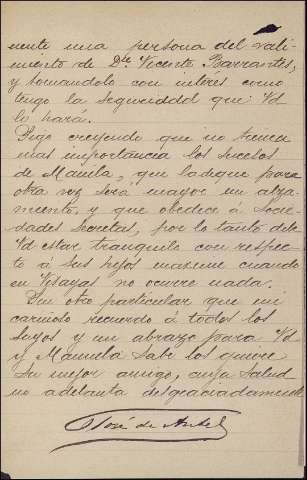 mente una persona del vali-
miento de Dn Vicente Barrantes,
y tomandolo con interés como
tengo la seguridad que Vd
lo hara.
Sigo creyendo que no tienen
mas importancia los sucesos
de Manila, que la de que para
otra vez será mayor un alza-
miento, y que obedice á Socie-
dades Secretas, por lo tanto debe
Vd estar tranquilo con respec-
to á sus hijos maxime cuando
en Visayas no ocurre nada.
Sin otro particular que mi
cariñoso recuerdo á todos los
suyos y un abrazo para Vd
y Manuela Sabe los quiere
Su mejor amigo, cuya Salud
no adelanta desgraciadamente
José de